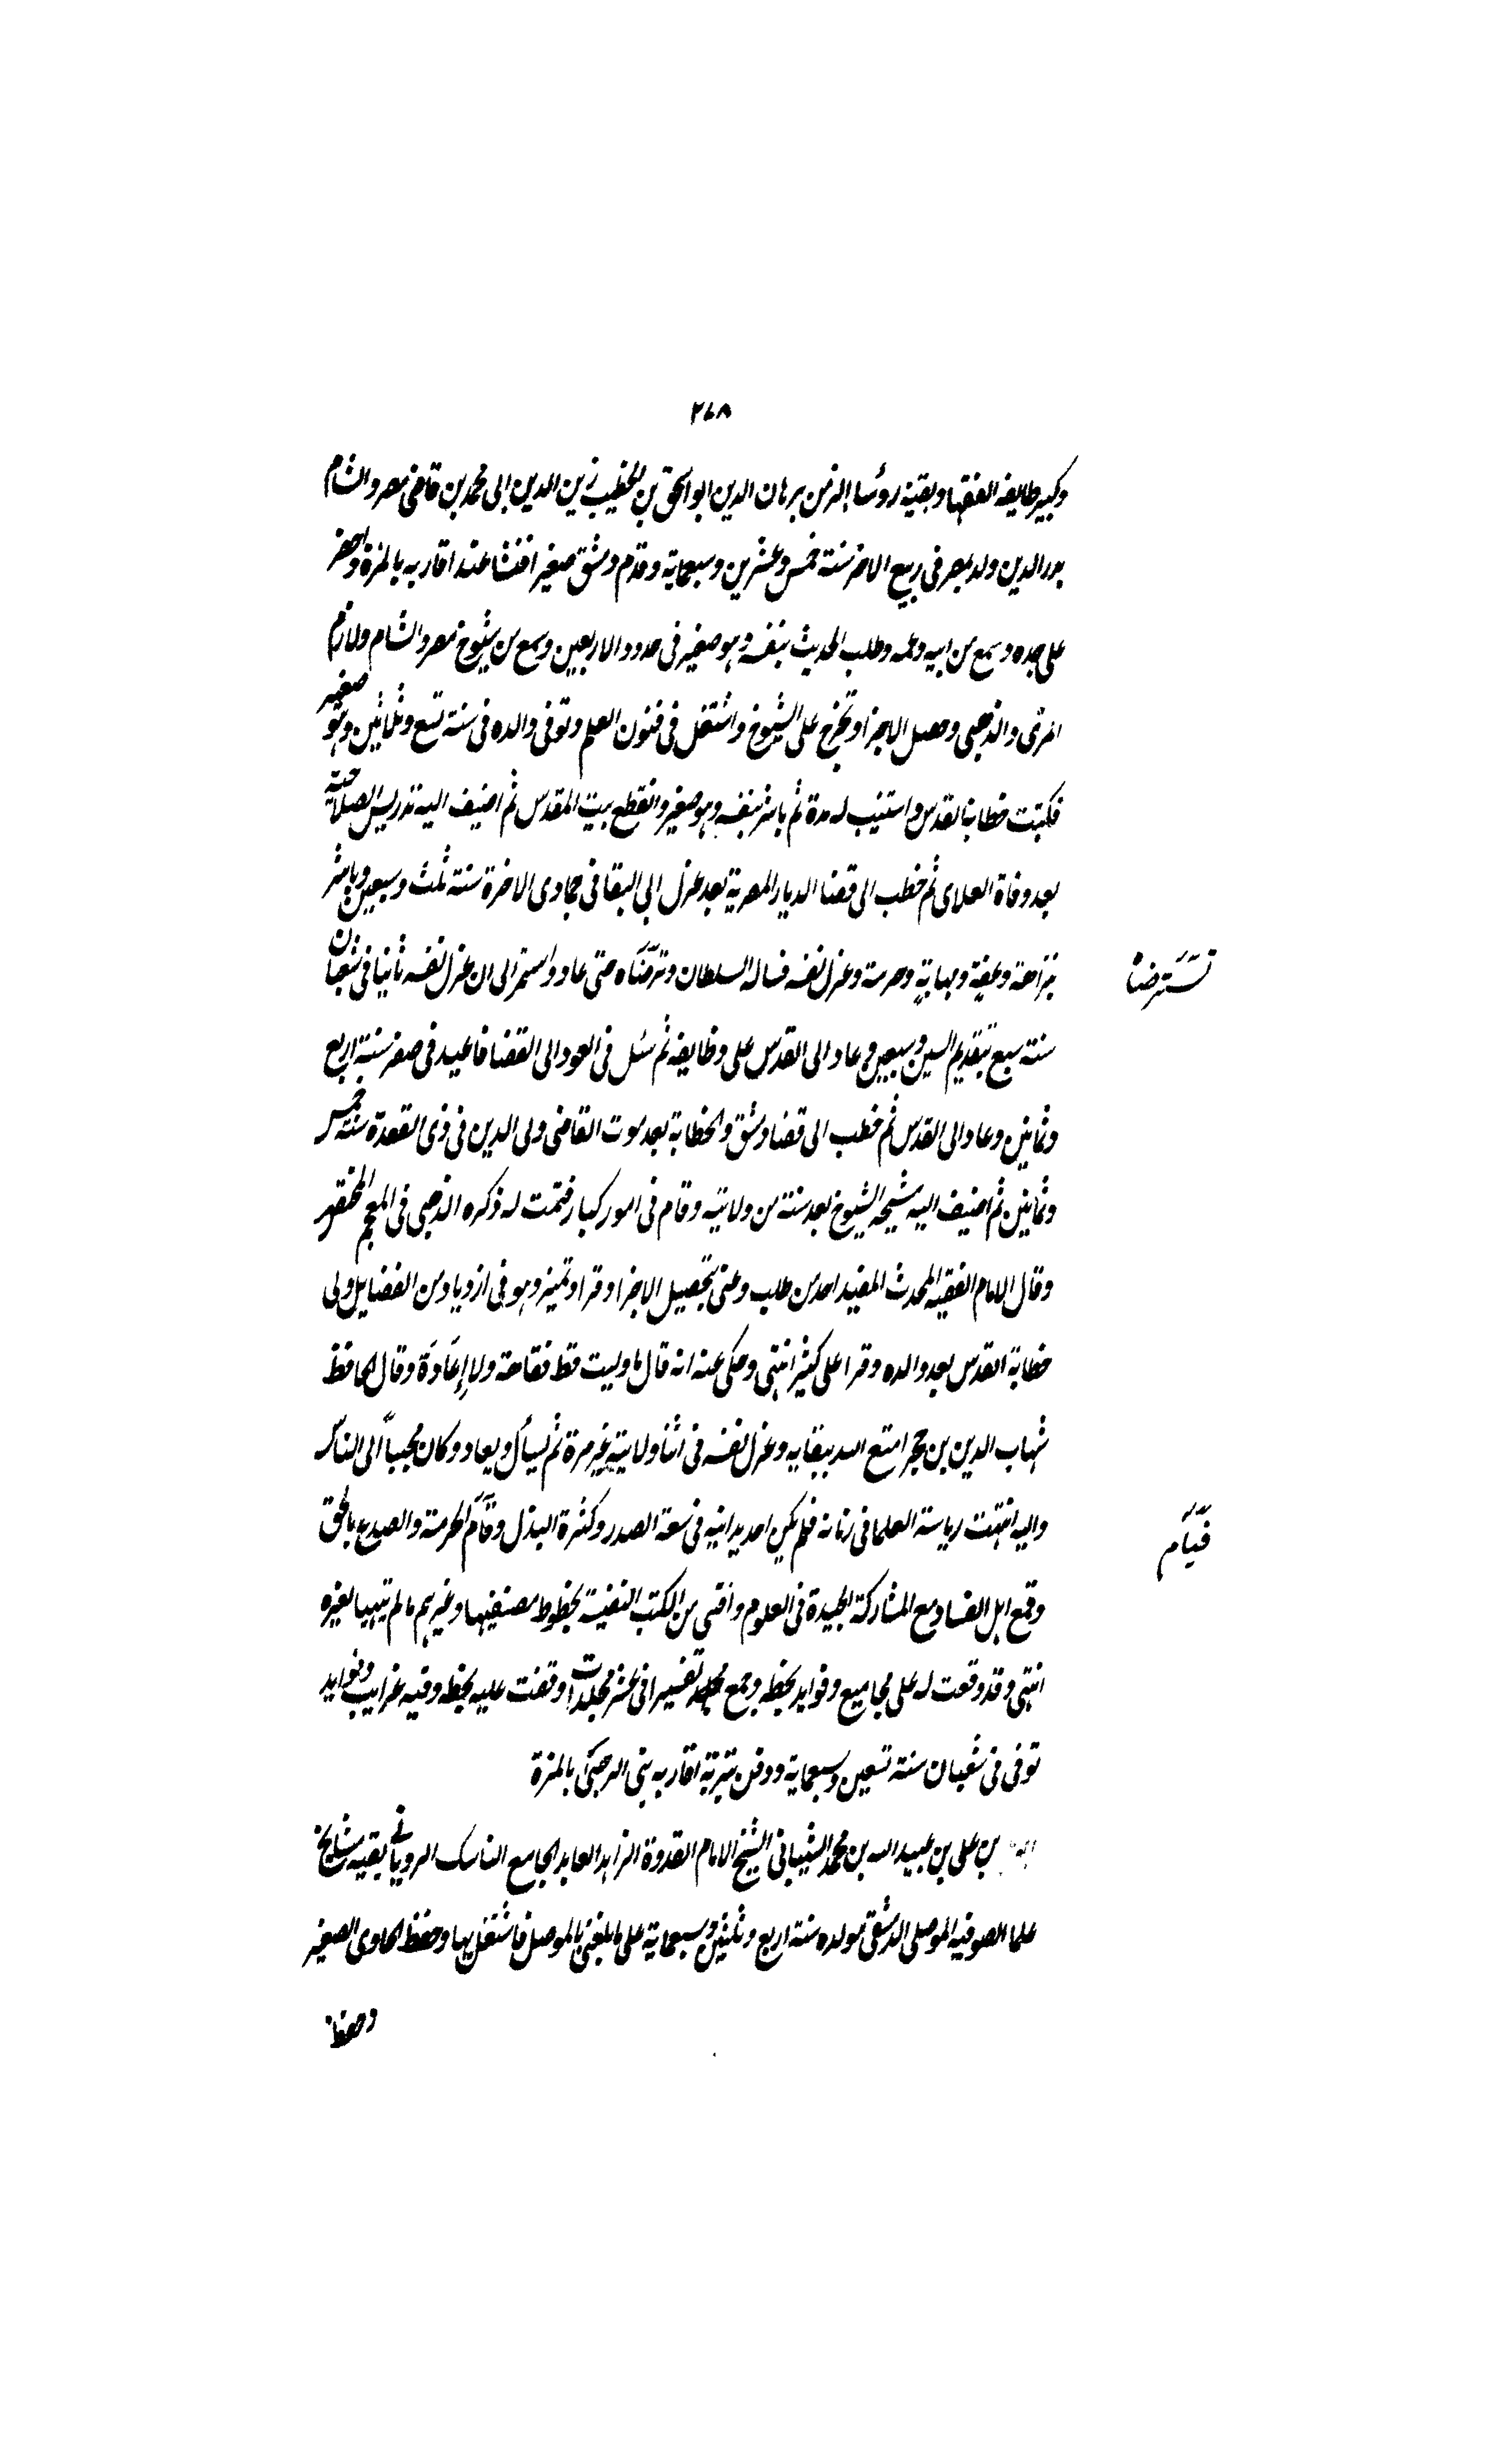 ٢٦٨
وكبير طايفه الفقها وبقية رؤسا الزمن برهان الدين ابو اسحق بن الخطيب زين الدين ابى محمد بن قاضى مصر والشام
بدر الدين ولد بمصر فى ربيع الاخر سنة خمس وعشرين وسبعماية وقدم دمشق صغيرا فنشا عند اقاربه بالمزة واحضر
على جده وسمع من ابيه وعمه وطلب الحديث بنفسه وهو صغير فى حدود الاربعين وسمع من شيوخ مصر والشام ولازم
المزى والذهبى وحصل الاجزا وتخرج على الشيوخ واشتغل فى فنون العلم وتوفى والده فى سنة تسع وثلثين وهو صغير
فكتبت خطابة القدس واستنيب له مدة ثم باشر بنفسه وهو صغير وانقطع ببيت المقدس ثم اضيف اليه تدريس الصلاحية
بعد وفاة العلاى ثم خطب الى قضا الديار المصرية بعد عزل ابى البقا فى جمادى الاخرة سنة ثلث وسبعين وباشر
بنزاهة وعفة ومهابة وحرمة وعزل نفسه فساله السلطان وترضاه حتى عاد واستمر الى ان عزل نفسه ثانيا فى شعبان
سنة سبع بتقديم السين وسبعين وعاد الى القدس على وظايفه ثم سئل فى العود الى القضا فاعيد فى صفر سنة اربع
وثمانين وعاد الى القدس ثم خطب الى قضا دمشق والخطابة بعد موت القاضى ولى الدين فى ذى القعدة سنة خمس
وثمانين ثم اضيف اليه مشيخة الشيوخ بعد سنة من ولايته وقام فى امور كبار فتمت له ذكره الذهبى فى المعجم المختصر
وقال الامام الفقيه المحدث المفيد احد من طلب وعنى بتحصيل الاجزا وقرا وتميز وهو فى ازدياد من الفضايل ولى
خطابة القدس بعد والده وقرا على كثيرا انتهى وحكى عنه انه قال ما وليت قط فقاهة ولا إعَادَة وقال الحافظ
شهاب الدين بن حجر امتع الله ببقايه وعزل نفسه فى اثنا ولايته غير مرة ثم يسأل ويعاد وكان محببا الى الناس
واليه انتهت رياسة العلما فى زمانه فلم يكن احد يدانيه فى سعة الصدر وكثرة البذل وقآم الحرمة والصدع بالحق
وقمع اهل الفساد مع المشاركة الجيدة فى العلوم واقتى من الكتب النفيسة بخطوط مصنفيها وغيرهم ما لم يتهيا لغيره
انتهى وقد وقعت له على مجاميع وفوايد بخطه وجمع تفسيرا فى عشر مجلدات وقفت عليه بخطه وفيه غرايب وفوايد
توفى فى شعبان سنة تسعين وسبعماية ودفن بتربة اقاربه بنى الرحبى بالمزة
بن على بن عبيد الله بن محمد الشيبانى الشيخ الامام القدوة الزاهد العابد الجامع الناسك الربانى بقيه مشايخ
علما الصوفيه الموصلى الدمشقى مولده سنة اربع وثلثين وسبعماية على ما بلغنى بالموصل فاشتغل بها وحفظ الحاوى الصغير
وحفظ
قيآم